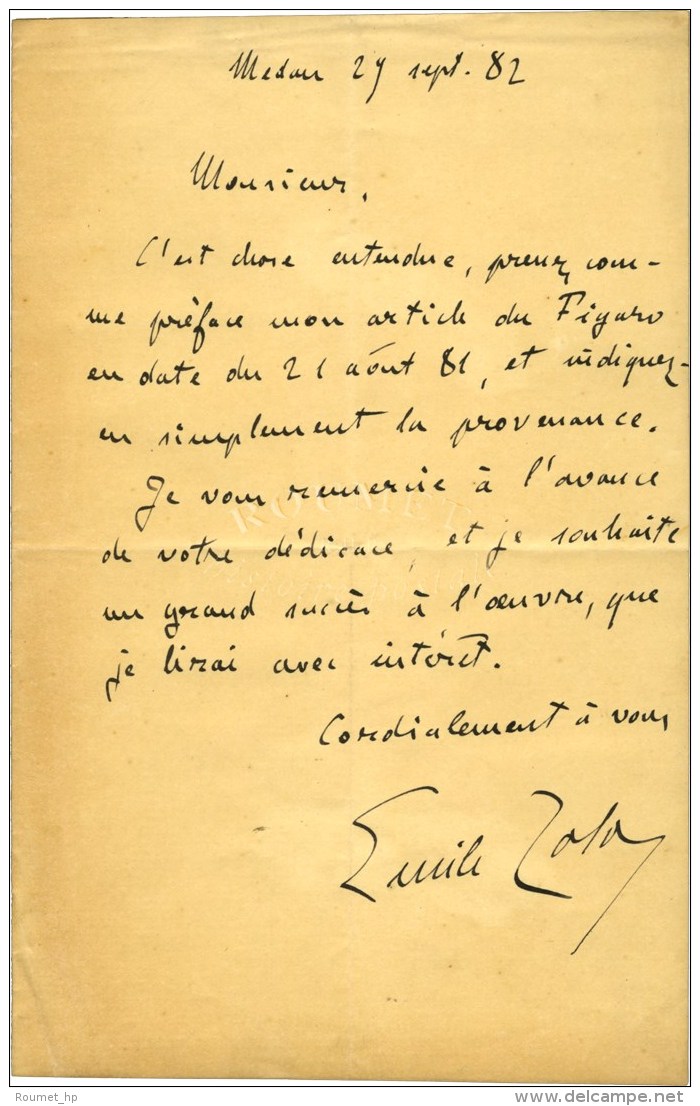 Medan 29 sept. 82
Monsieur,
C'est chose entendue, prenez com-
me préface mon article du Figaro
en date du 21 août 81, et indiquez-
en simplement la provenance.
Je vous remercie à l'avance
de votre dédicace, et je souhaite
un grand succès à l'œuvre, que
je lirai avec intérêt.
Cordialement à vous
Emile Zola
ROUMET
Roumet_hp
delcampe.net